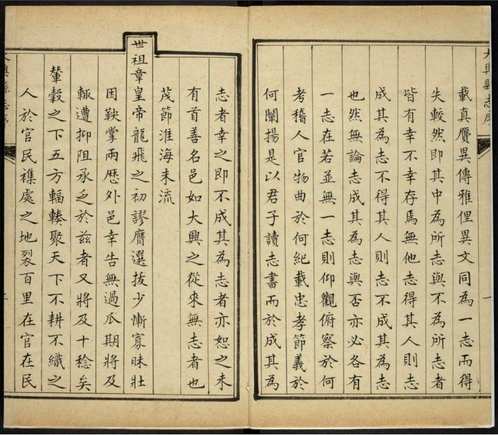 載真贋異傳雅俚異文同為一志而得
失較然即其中為所志與不為所志者
皆有幸不幸存焉無他志得其人則志
成其為志不得其人則志不成其為志
也然無論志成其為志與否亦必各有
一志在若並無一志則仰觀俯察於何
考稽人官物曲於何紀載忠孝節義於
何闡揚是以君子讀志書而於成其為
志者幸之即不成其為志者亦恕之未
有首善名邑如大興之從來無志者也
茂節淮海末流
世祖章皇帝龍飛之初謬膺選拔少慚寡昧壯
困鞅掌兩歷外邑幸告無過瓜期將及
輒遭抑阻承乏於茲者又將及十稔矣
輦轂之下五方輻輳聚天下不耕不織之
人於官民襍處之地裂百里在官在民
大興縣志序